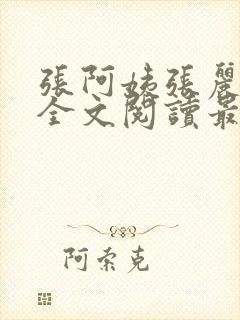 張阿姨張麗
全文閱讀最
阿索克